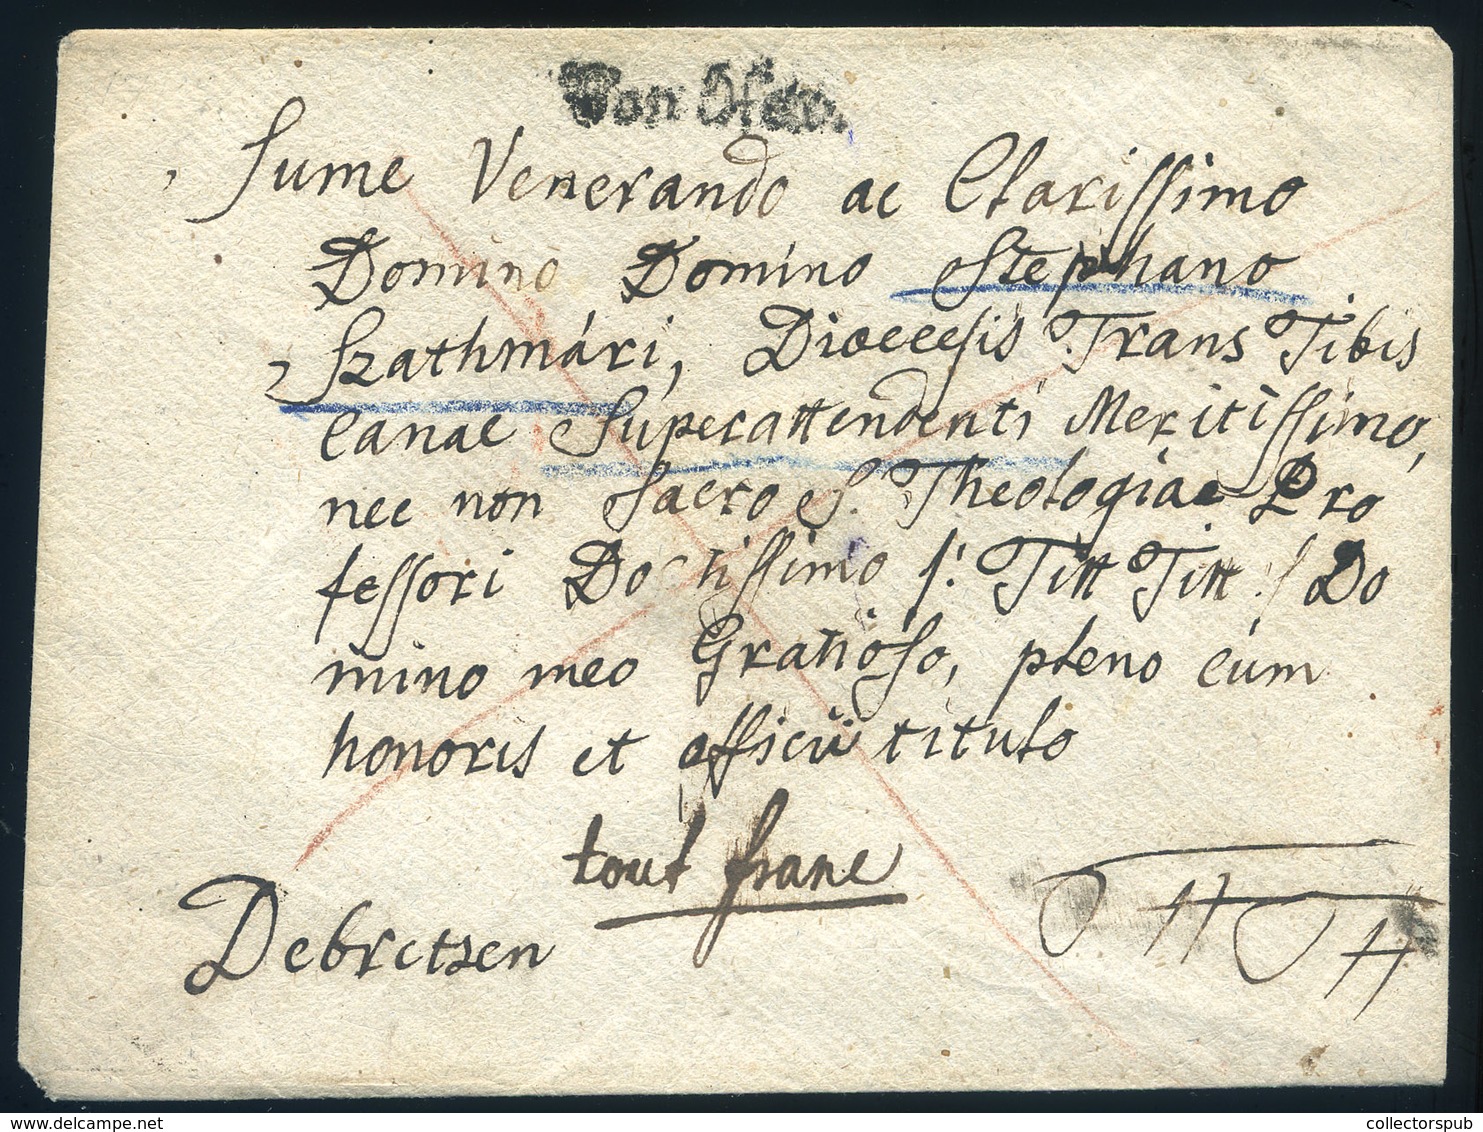 Von Ofen.
Sume Venerando ac Clarissimo
Domino Domino Stephano
Szathmári, Dioecesis Trans Tibis
canae Superattendenti Meritissimo,
nec non Sacro S. Theologiae Pro
fessori Doctissimo /: Titt Titt :/ Do
mino meo Gratioso, pleno cum
honoris et officii titulo
tout franc
Debretzen
collectorspub.com